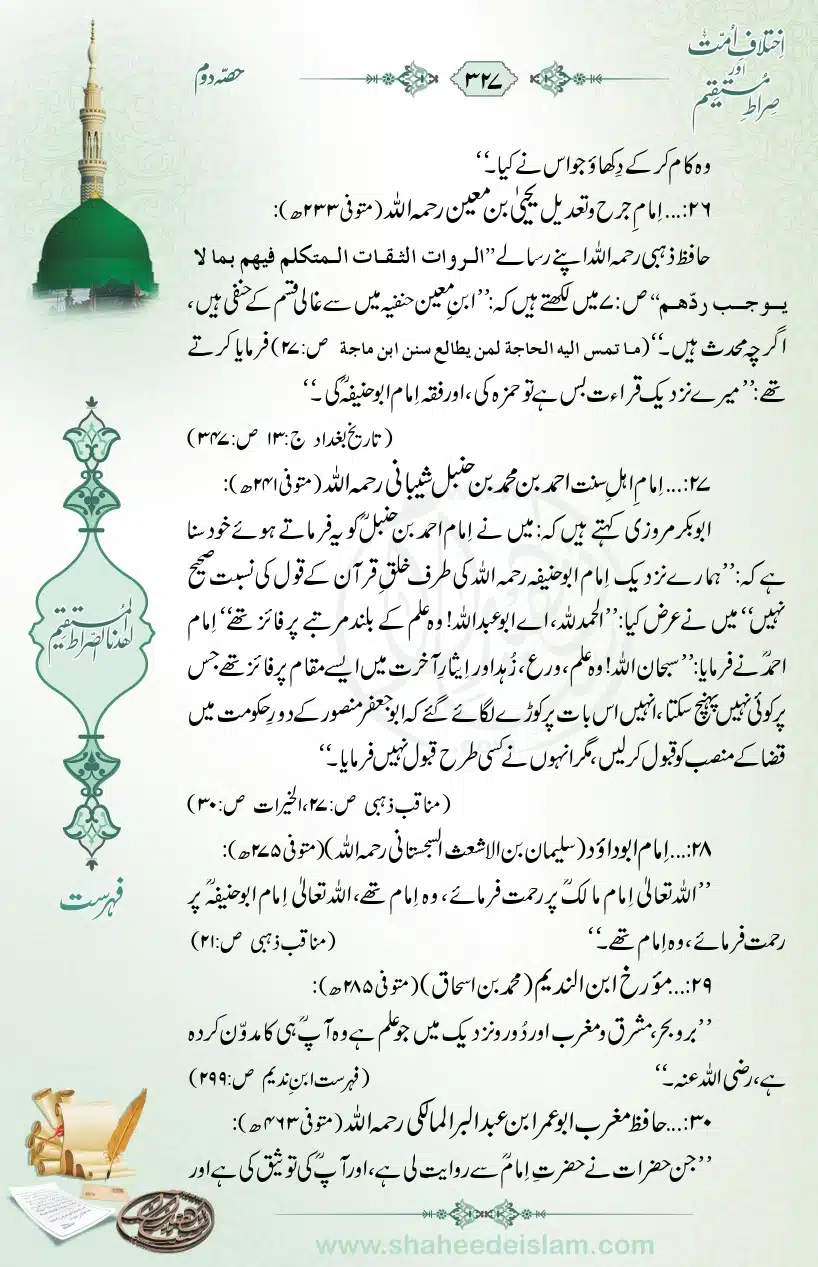 اِختلافِ اُمّت
اور
صراطِ مُستقیم
۳۲۷
حصّہ دوم
وہ کام کرکے دِکھاؤ جو اس نے کیا۔‘‘
۲۶:… اِمامِ جرح و تعدیل یحییٰ بن معین رحمہ اللہ (متوفی ۲۳۳ھ):
حافظ ذہبی رحمہ اللہ اپنے رسالے ’’الروات الثقات المتکلم فیھم بما لا
یوجب ردّھم‘‘ ص:۷ میں لکھتے ہیں کہ: ’’ابنِ معین حنفیہ میں سے غالی قسم کے حنفی ہیں،
اگرچہ محدث ہیں۔‘‘ (ما تمس الیہ الحاجة لمن یطالع سنن ابن ماجة ص:۲۷) فرمایا کرتے
تھے: ’’میرے نزدیک قراءت بس ہے تو حمزہ کی، اور فقہ اِمام ابوحنیفہؒ کی۔‘‘
(تاریخ بغداد ج:۱۳ ص:۳۴۷)
۲۷:… اِمامِ اہلِ سنت احمد بن محمد بن حنبل شیبانی رحمہ اللہ (متوفی ۲۴۱ھ):
ابوبکر مروزی کہتے ہیں کہ: میں نے اِمام احمد بن حنبلؒ کو یہ فرماتے ہوئے خود سنا
ہے کہ: ’’ہمارے نزدیک اِمام ابوحنیفہ رحمہ اللہ کی طرف خلقِ قرآن کے قول کی نسبت صحیح
نہیں‘‘ میں نے عرض کیا: ’’الحمدللہ، اے ابوعبداللہ! وہ علم کے بلند مرتبے پر فائز تھے‘‘ اِمام
احمدؒ نے فرمایا: ’’سبحان اللہ! وہ علم، ورع، زُہد اور اِیثارِ آخرت میں ایسے مقام پر فائز تھے جس
پر کوئی نہیں پہنچ سکتا، انہیں اس بات پر کوڑے لگائے گئے کہ ابوجعفر منصور کے دورِ حکومت میں
قضا کے منصب کو قبول کرلیں، مگر انہوں نے کسی طرح قبول نہیں فرمایا۔‘‘
(مناقب ذہبی ص:۲۷، الخیرات ص:۳۰)
۲۸:… اِمام ابوداؤد (سلیمان بن الاشعث السجستانی رحمہ اللہ) (متوفی ۲۷۵ھ):
’’اللہ تعالیٰ اِمام مالکؒ پر رحمت فرمائے، وہ اِمام تھے، اللہ تعالیٰ اِمام ابوحنیفہؒ پر
رحمت فرمائے، وہ اِمام تھے۔‘‘ (مناقب ذہبی ص:۲۱)
۲۹:… مؤرخ ابن الندیم (محمد بن اسحاق) (متوفی ۲۸۵ھ):
’’بر و بحر، مشرق و مغرب اور دُور و نزدیک میں جو علم ہے وہ آپؒ ہی کا مدوّن کردہ
ہے، رضی اللہ عنہ۔‘‘ (فہرست ابنِ ندیم ص:۲۹۹)
۳۰:… حافظ مغرب ابوعمر ابن عبدالبر المالکی رحمہ اللہ (متوفی ۴۶۳ھ):
’’جن حضرات نے حضرتِ اِمامؒ سے روایت لی ہے، اور آپؒ کی توثیق کی ہے اور
اھدنا الصراط المستقیم
فہرست
www.shaheedeislam.com